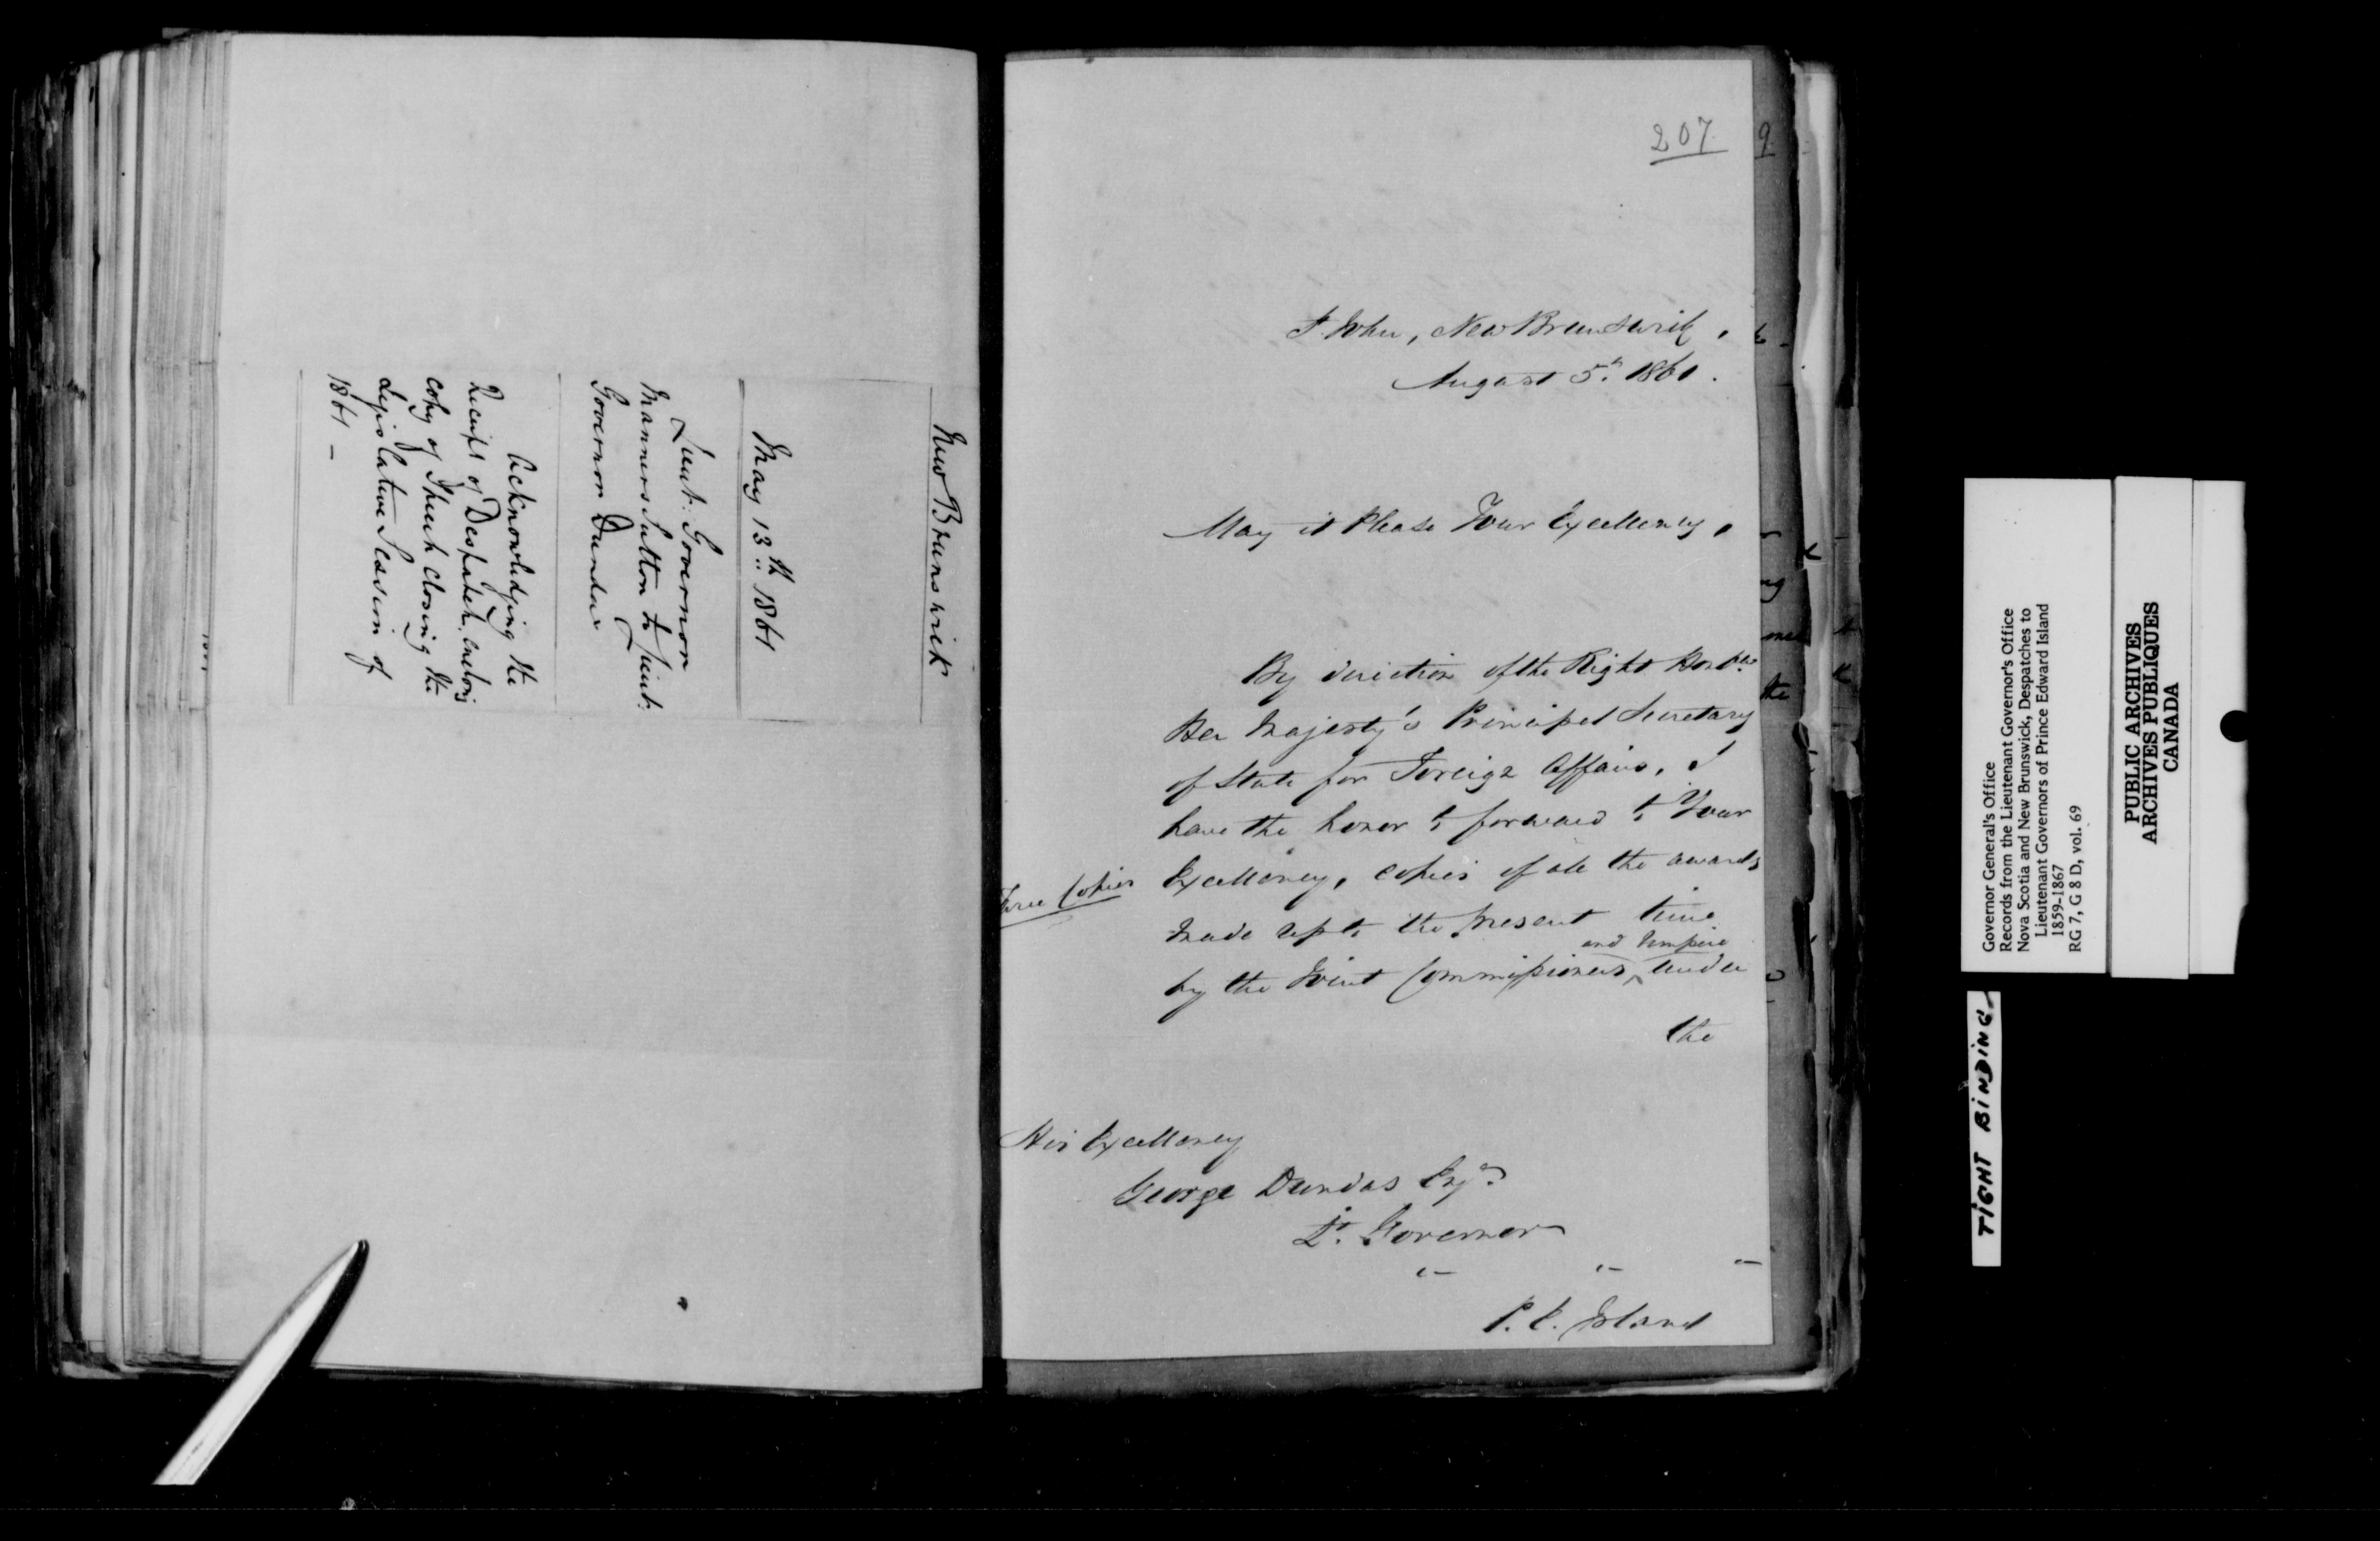 New Brunswick
May 13th 1861
Lieut: Governor
Manners Sutton to Lieut:
Governor Dundas
Acknowledging the
Receipt of Despatch enclosing
copy of Speech closing the
Legislative Session of
1861 –
207
9
St John, New Brunswick,
August 5th 1861.
May it Please Your Excellency,
By direction of the Right Honble
Her Majesty's Principal Secretary
of State for Foreign Affairs, I
have the honor to forward to Your
Excellency, copies of all the awards
Three Copies
made up to the present time
by the Joint Commissioners and Umpire under
the
His Excellency
George Dundas Esqr
Lt. Governor
" " "
P. E. Island
Governor General's Office
Records from the Lieutenant Governor's Office
Nova Scotia and New Brunswick, Despatches to
Lieutenant Governors of Prince Edward Island
1859-1867
RG 7, G 8 D, vol. 69
PUBLIC ARCHIVES
ARCHIVES PUBLIQUES
CANADA
TIGHT BINDING